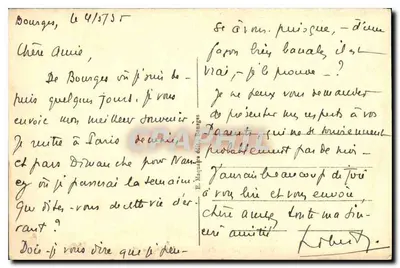 Bourges, le 4/5/35
Chère Amie,
De Bourges où je suis de-
puis quelques jours, je vous
envoie mon meilleur souvenir.
Je rentre à Paris demain,
et pars Dimanche pour Nan-
cy où je passerai la semaine.
que dites-vous de cette vie d'er-
rant?
Dois-je vous dire que je pen-
se à vous puisque, - d'une
façon bien banale, il est
vrai, - je le prouve - ?
Je ne peux vous demander
de présenter mes respects à vos
Parents qui ne se souviennent
probablement pas de moi -
J'aurai beaucoup de joie
à vous lire et vous envoie,
chère amie, toute ma sin-
cère amitié